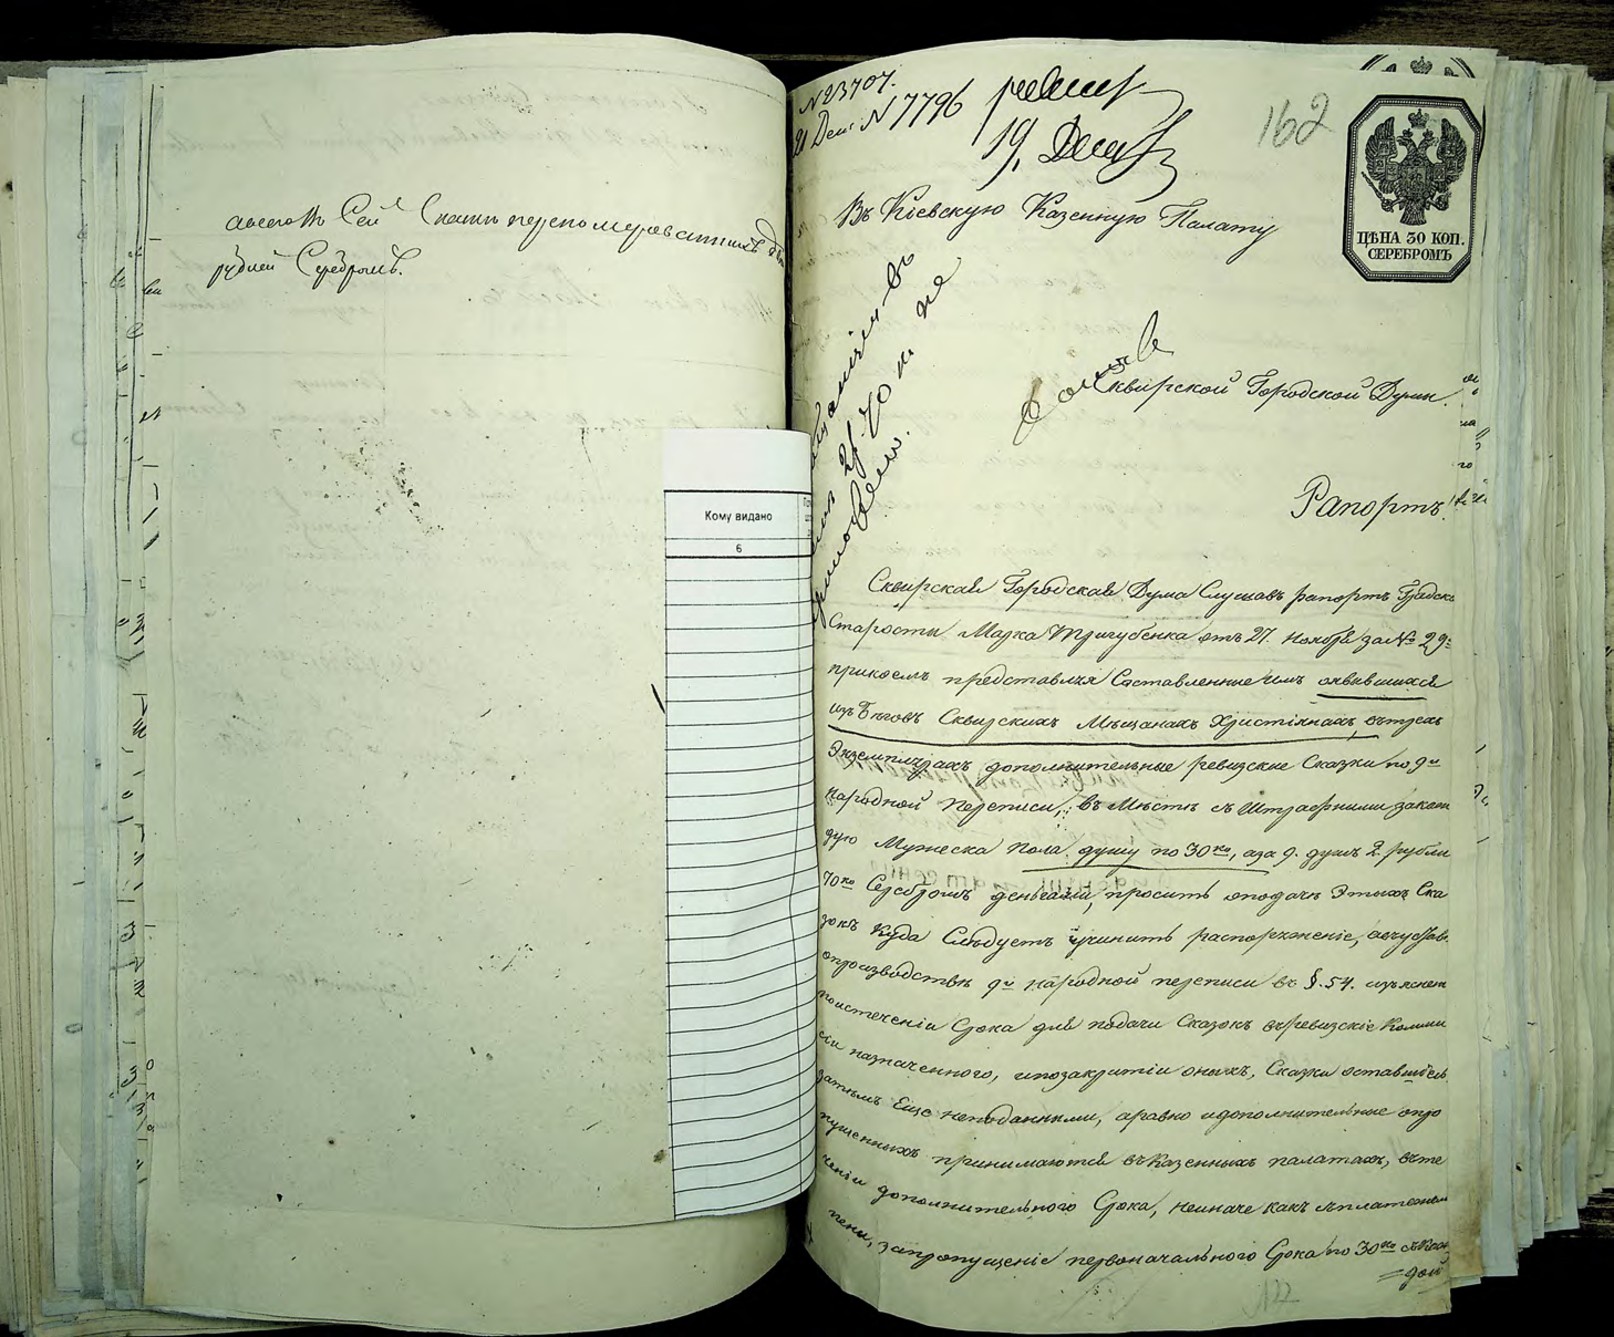 рублей Серебромъ.
Кому видано
6
N 23707.
21 Дек: N 7796
19, Дек
162
ЦѢНА 30 КОП.
СЕРЕБРОМЪ
Въ Кіевскую Казенную Палату
Сквирской Городской Думы.
Рапортъ.
Сквирская Городская Дума Слушавъ рапортъ Градск
Старосты Марка Тригубенка отъ 27. Ноября за № 29:
при коемъ представляя Составленные имъ оявившихся
изъ Бѣговъ Сквирскихъ Мѣщанахъ Христіянахъ, въ трехъ
Экземплярахъ дополнительные ревизские Сказки по 9й
народной переписи, въ Мѣстѣ съ Штрафними за каж
дую Мужеска пола душу по 30ко, а за 9. душъ 2. рубли
70ко Серебромъ деньгами, проситъ о подачѣ Этихъ Ска
зокъ Куда Слѣдуетъ учинить распоряженіе,
о производствѣ 9й народной переписи въ §. 54. изъяснен
по истеченіи Срока для подачи Сказокъ въ ревизскіе Комми
сіи назначенного, и по закритіи оныхъ, Сказки оставшіесь
затѣмъ Еще неподанными, а равно и дополнительные о про
пущенныхъ принимаются въ Казенныхъ палатахъ, въ те
ченіи дополнительного Срока, неиначе какъ съ платежем
пени, за пропущеніе первоначального Срока по 30ко съ Каж
=дой